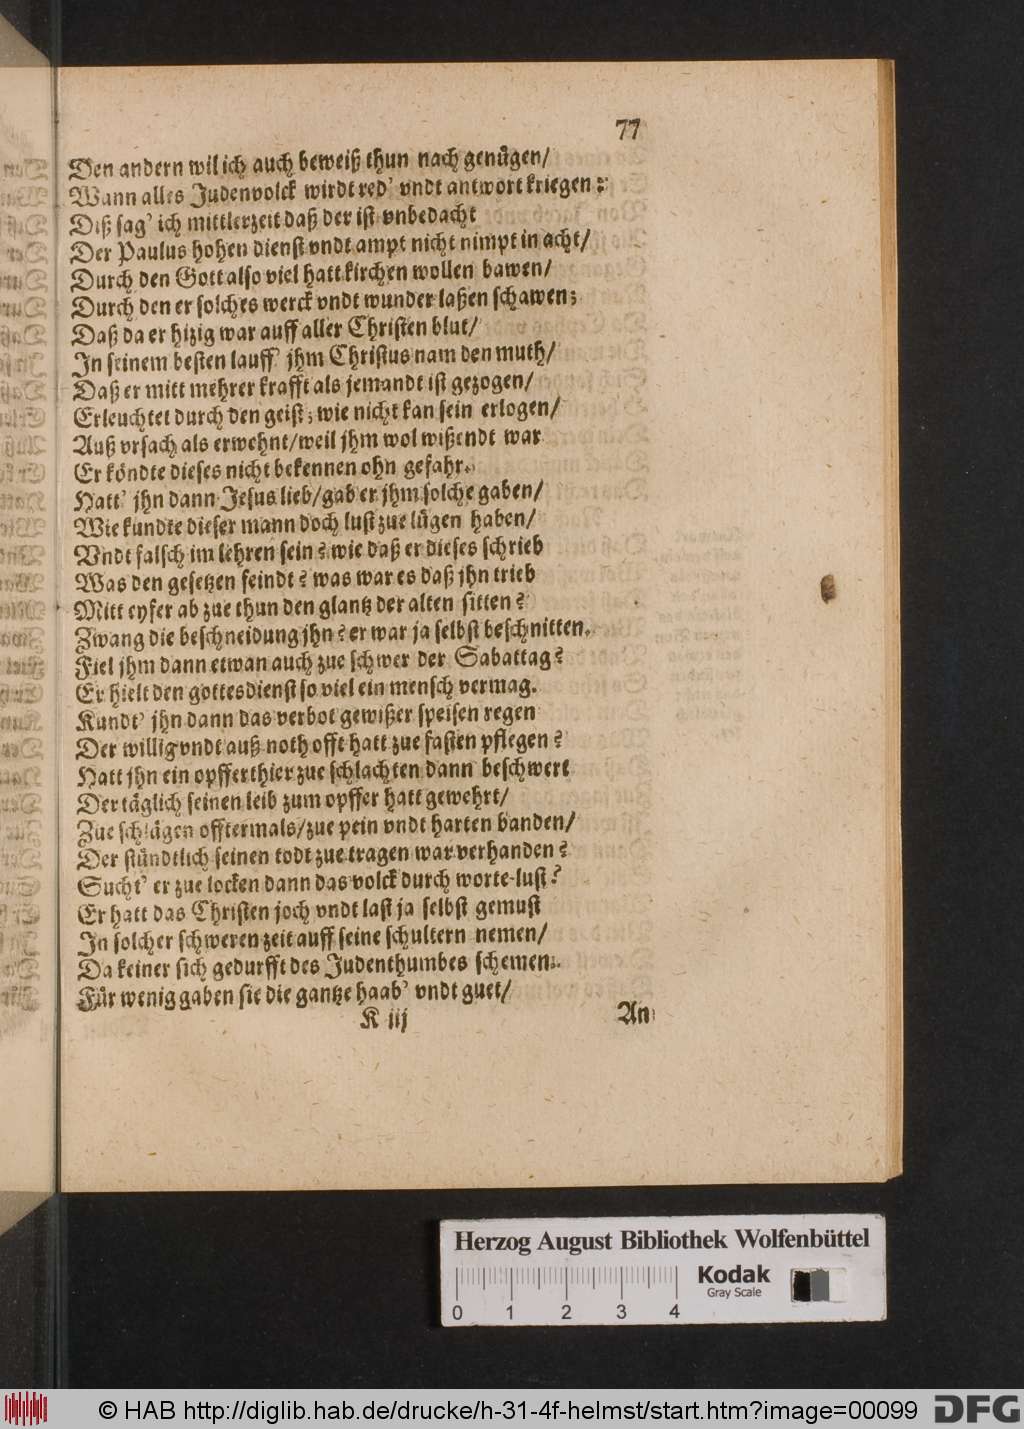 77
Den andern wil ich auch beweiß thun nach genügen/
Wann alles Judenvolck wirdt red' vndt antwort kriegen:
Diß sag' ich mittlerzeit daß der ist vnbedacht
Der Paulus hohen dienst vndt ampt nicht nimpt in acht/
Durch den Gott also viel hatt kirchen wollen bawen/
Durch den er solches werck vndt wunder laßen schawen;
Daß da er hizig war auff aller Christen blut/
In seinem besten lauff' jhm Christus nam den muth/
Daß er mitt mehrer krafft als jemandt ist gezogen/
Erleuchtet durch den geist; wie nicht kan sein erlogen/
Auß vrsach als erwehnt/weil jhm wol wißendt war
Er köndte dieses nicht bekennen ohn gefahr.
Hatt' jhn dann Jesus lieb/gab er jhm solche gaben/
Wie kundte dieser mann doch lust zue lügen haben/
Vndt falsch im lehren sein? wie daß er dieses schrieb
Was den gesetzen feindt? was war es daß jhn trieb
Mitt eyfer ab zue thun den glantz der alten sitten?
Zwang die beschneidung jhn? er war ja selbst beschnitten.
Fiel jhm dann etwan auch zue schwer der Sabattag?
Er hielt den gottesdienst so viel ein mensch vermag.
Kundt' jhn dann das verbot gewißer speisen regen
Der willig vndt auß noth offt hatt zue fasten pflegen?
Hatt jhn ein opfferthier zue schlachten dann beschwert
Der täglich seinen leib zum opffer hatt gewehrt/
Zue schlägen offtermals/zue pein vndt harten banden/
Der stündtlich seinen todt zue tragen war verhanden?
Sucht' er zue locken dann das volck durch worte-lust?
Er hatt das Christen joch vndt last ja selbst gemust
In solcher schweren zeit auff seine schultern nemen/
Da keiner sich gedurfft des Judenthumbes schemen.
Für wenig gaben sie die gantze haab' vndt guet/
K iij An
Herzog August Bibliothek Wolfenbüttel
Kodak
Gray Scale
0 1 2 3 4
© HAB http://diglib.hab.de/drucke/h-31-4f-helmst/start.htm?image=00099 DFG